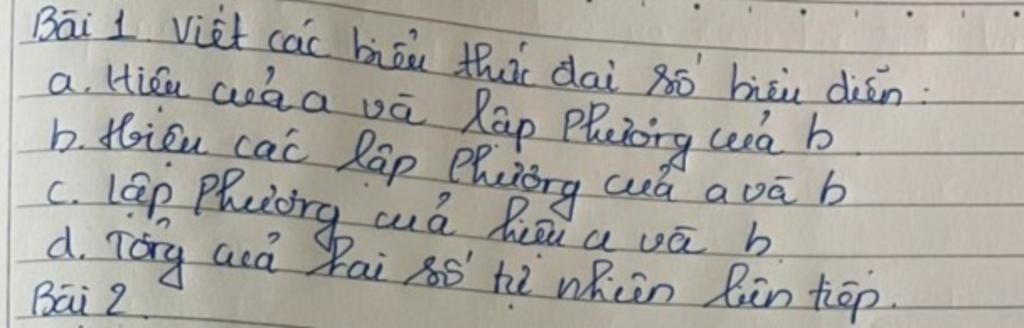 Bài 1 Viết các biểu thức đại số biểu diễn:
a. Hiệu của a và lập phương của b
b. Hiệu các lập phương của a và b
c. lập phương của hiệu a và b
d. Tổng của hai số tự nhiên liên tiếp.
Bài 2